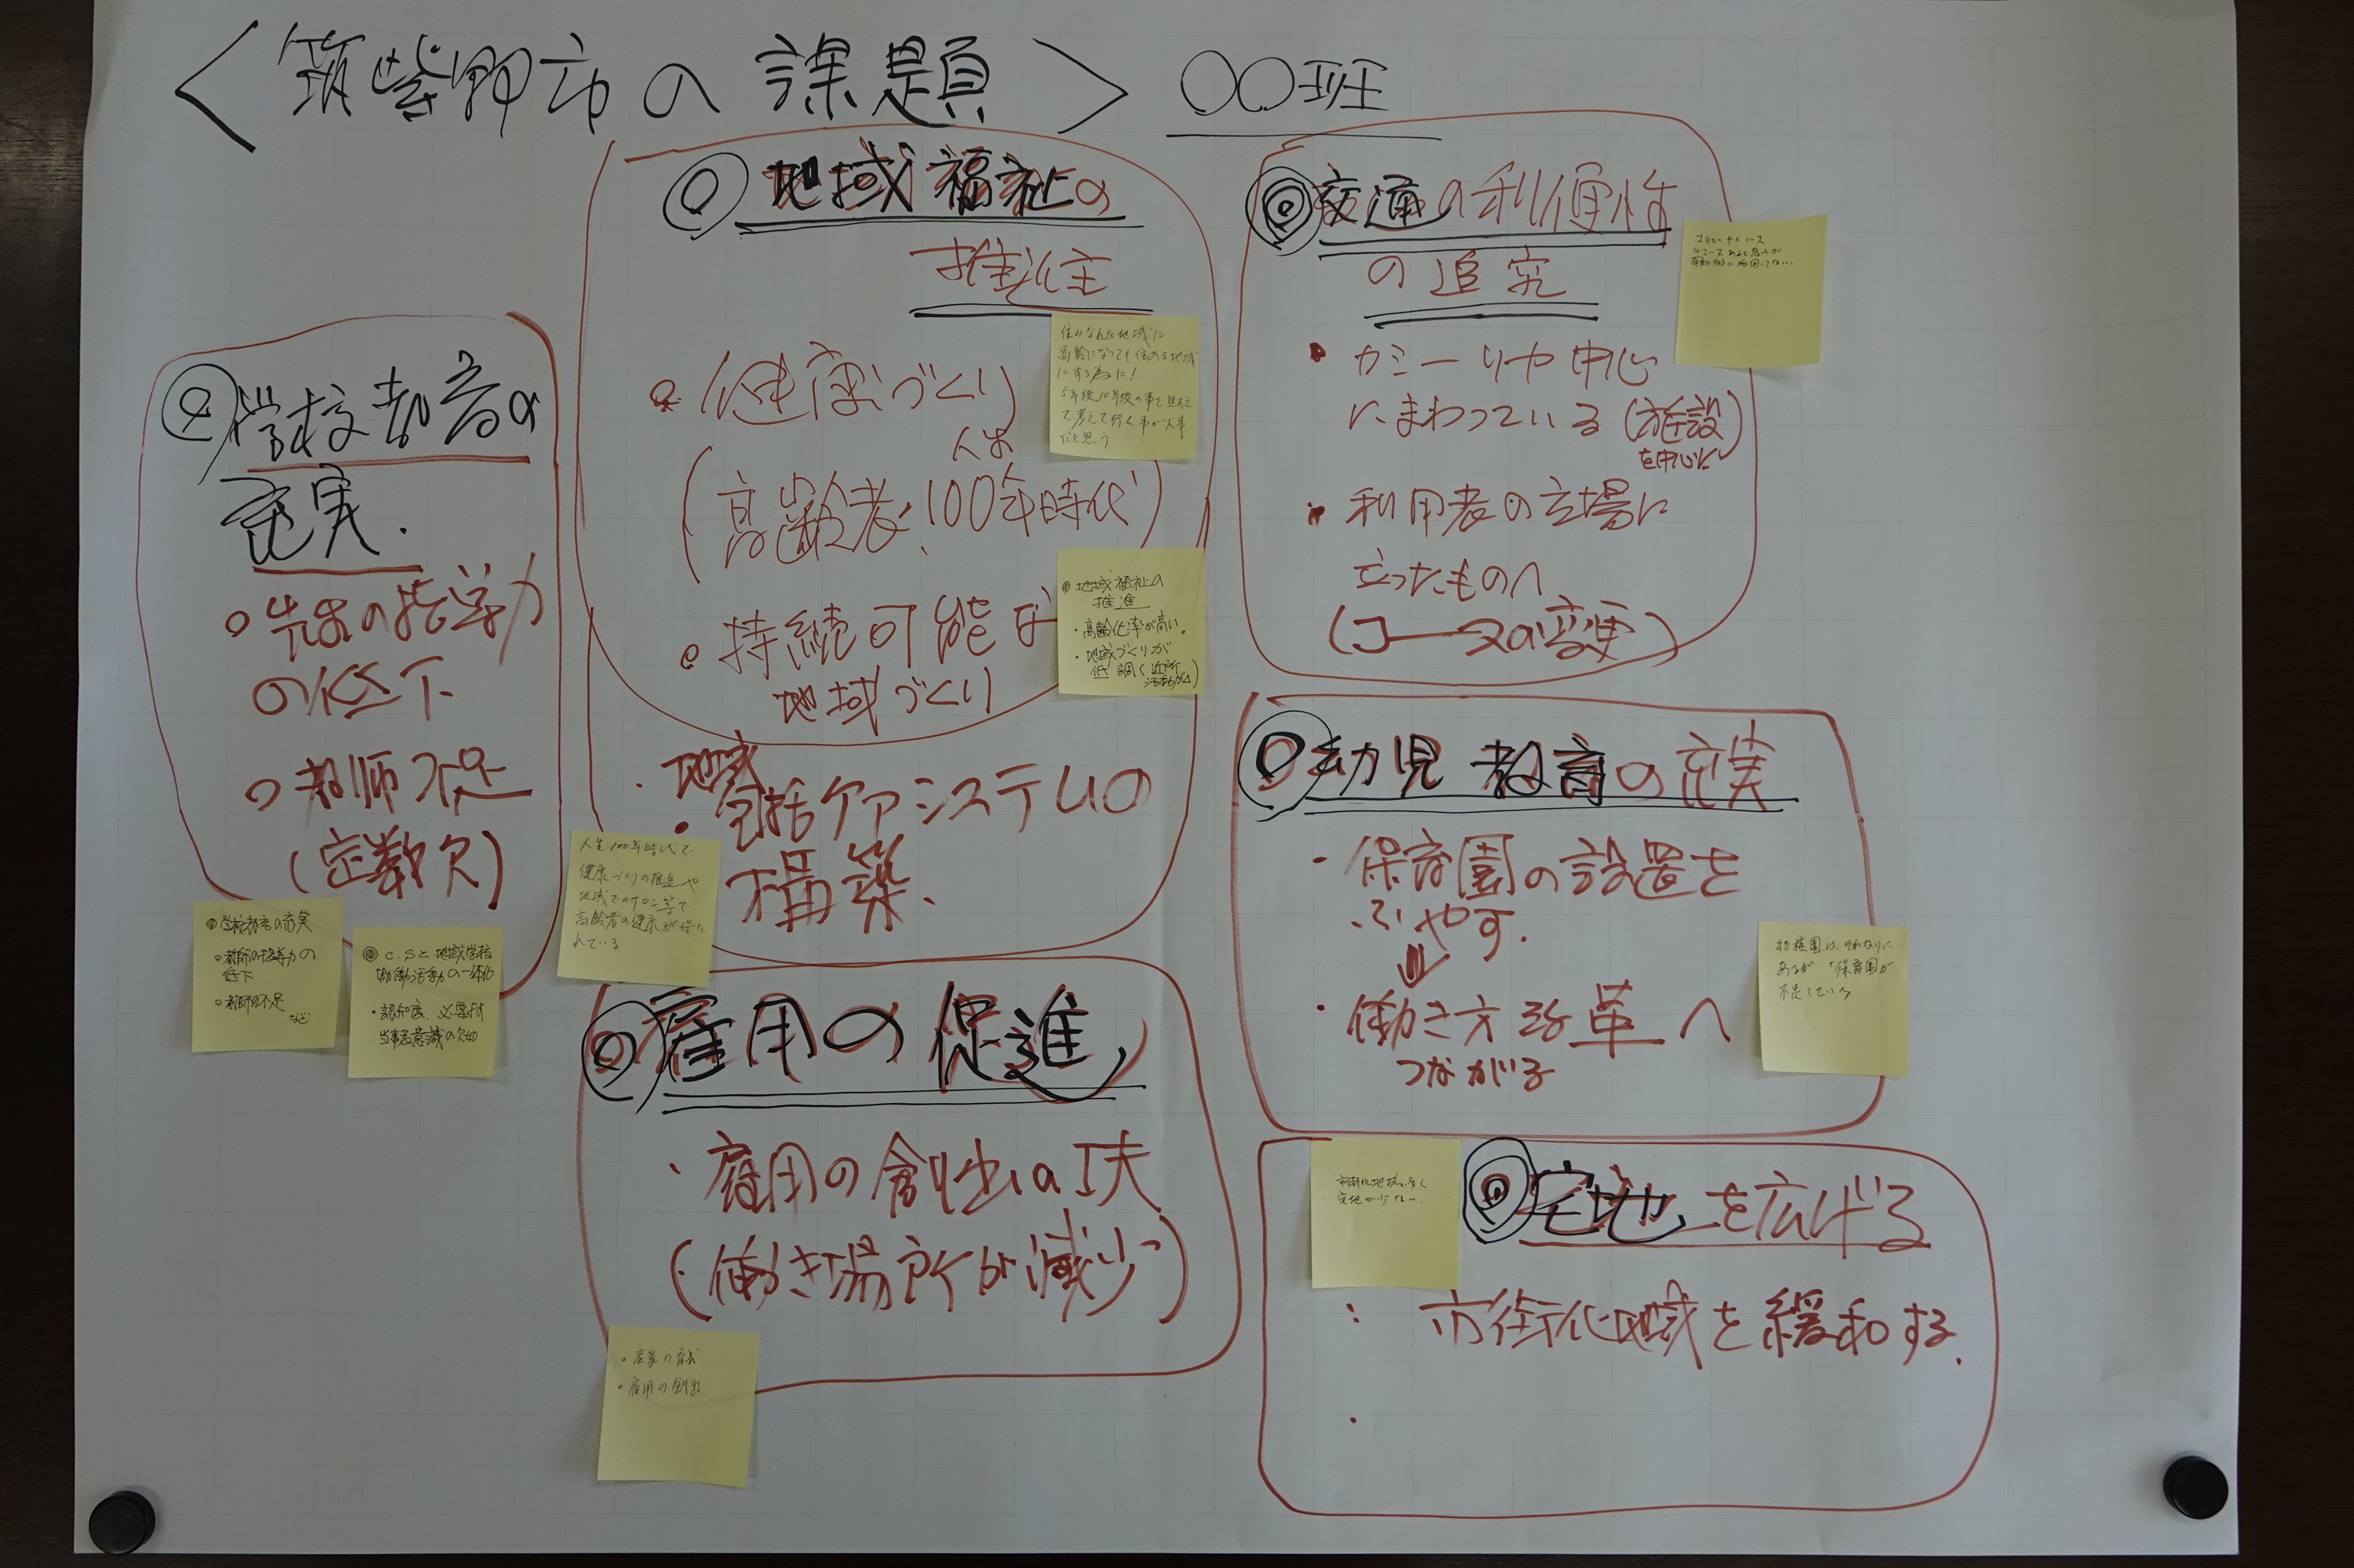 〈筑紫野市の課題〉 〇〇班
◎学校教育の
充実.
○先生の指導力
の低下
○教師不足
(定数欠)
◎学校教育の充実
○教師の指導力の
低下
○教師の不足
など
◎C.Sと地域学校
協働活動の一体化
・認知度、必要性
当事者意識の欠如
◎地域福祉の
推進
○健康づくり
人生
(高齢者、100年時代)
○持続可能な
地域づくり
・地域
包括ケアシステムの
構築.
住みなれた地域に
高齢になっても住める地域
にする為に!
5年後10年後の事を見すえ
て考えて行く事が大事
だと思う
◎地域福祉の
推進
・高齢化率が高い。
・地域づくりが
低調(近所
人生100年時代で
健康づくりの推進や
地域でのサロン等で
高齢者の健康が保た
れている
◎雇用の促進
・雇用の創出の工夫
(働き場所が減少)
○産業の育成
○雇用の創出
◎交通の利便性
の追究
・カミーリヤ中心
にまわっている(施設
を中心に)
・利用者の立場に
立ったものへ
(コースの変更)
コミュニティバス
4コースあると思うが
◎幼児教育の充実
・保育園の設置を
ふやす.
↓
・働き方改革へ
つながる
幼稚園は、それなりに
あるが「保育園が
不足している
◎宅地を広げる
: 市街化地域を緩和する.
・